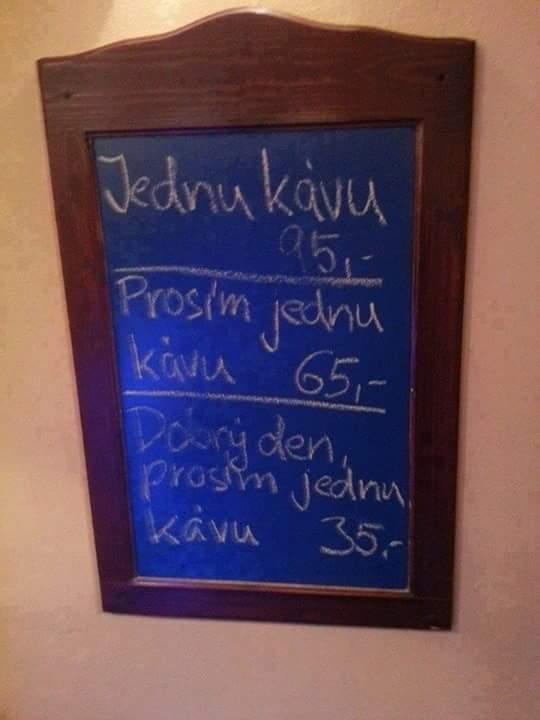 Jednu kávu
95,-
Prosím jednu
kávu 65,-
Dobrý den,
prosím jednu
kávu 35,-